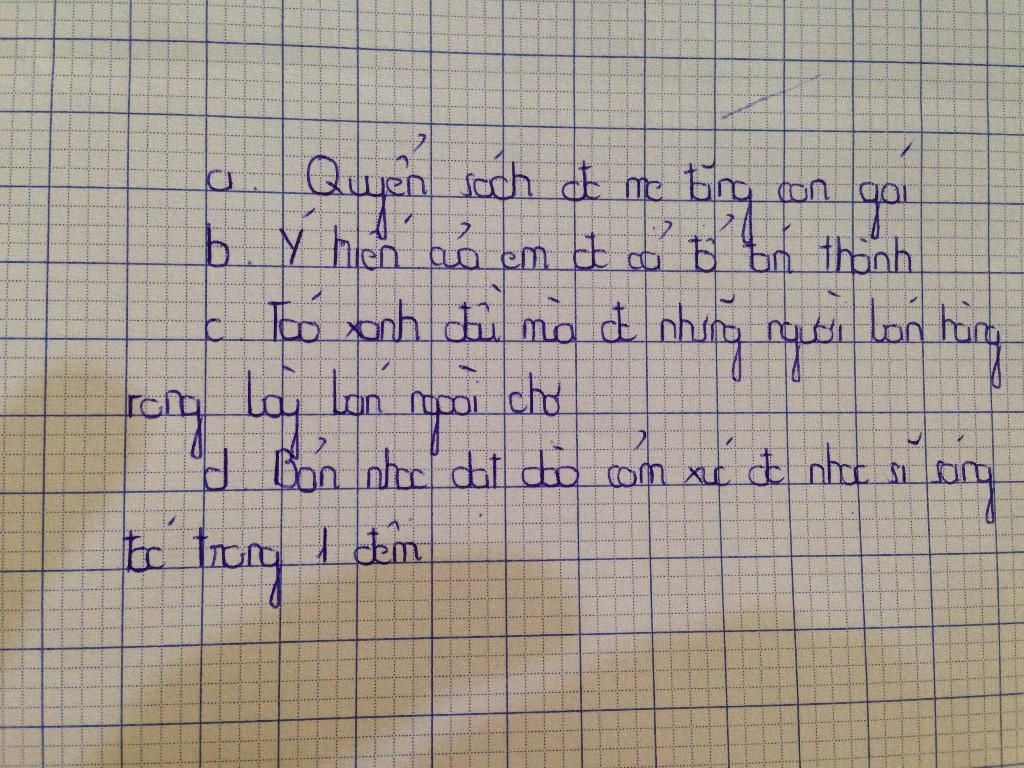 a. Quyển sách đc mẹ tặng con gái
b. Ý kiến của em đc cả tổ tán thành
c. Táo xanh đầu mùa đc những người bán hàng
rong bày bán ngoài chợ
d Bản nhạc dạt dào cảm xúc đc nhạc sĩ sáng
tác trong 1 đêm